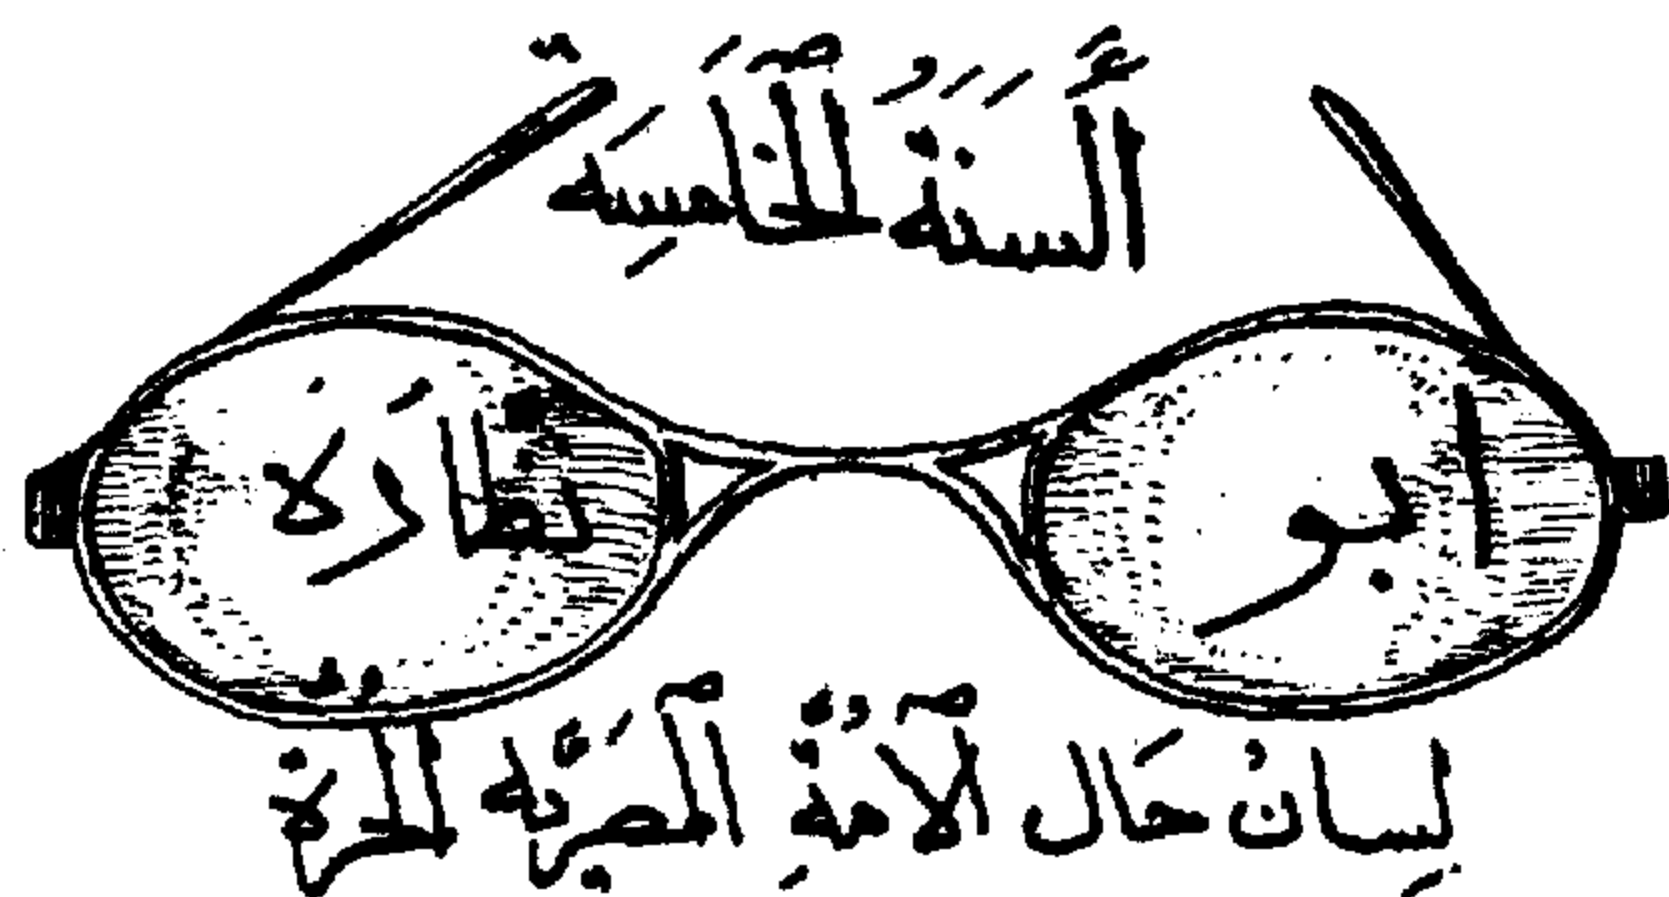 اَلسَّنَةُ الْخَامِسَه
ابو نظارة
لِسَانُ حَال الْأُمَّةِ الْمِصْرِيَّه الْحُرَّة